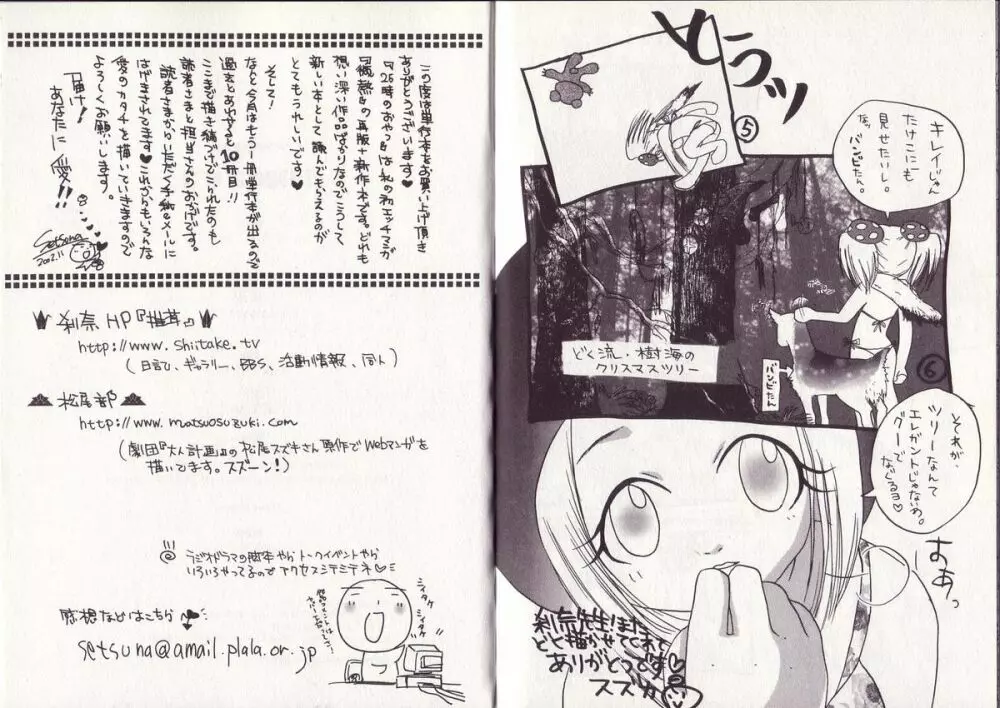 とうッ
⑤
キレイじゃ
たけこにも
見せたいし。
なっ バンビたん。
どく流・樹海の
クリスマスツリー
バンビたん
⑥
それが、
ツリーなんて
エレガントじゃないわ。
グーで
なぐるヨ♡
すあっ
刹奈先生!また
どく描かせてくれて
ありがとうです♡
スズカ
この度は単行本をお買い上げ頂き
ありがとうございます♥
『26時のおやつ』はれの初エッチマンガ
の再版+新作本です。どれも
想い深い作品ばかりなのでこうして
新しい本として読んでもらえるのが
とてもうれしいです♥
そして!
なんと今月はもう1冊単行本が出るので
過去とあわせると10冊目!!
ここまで描き続けてこられたのも
読者さまと担当さんのおかげです。
読者さまからいただく手紙やメールに
はげまされてます♥これからもいろんな
愛のカタチを描いていきますので
よろしくお願いします。
届け!
あなたに愛!!
Setsuna
2002.11
刹奈HP『椎茸』
http://www.shiitake.tv
(日記、ギャラリー、BBS、活動情報、同人)
松尾部
http://www.matsuosuzuki.com
(劇団『大人計画』の松尾スズキさん原作でWebマンガを
描いてます。スズーン!)
ラジオドラマの脚本やらトークイベントやら
いろいろやってるのでアクセスシテミテネ♡
シイタケ
シイタケ
感想などはこちら
setsuna@amail.plala.or.jp